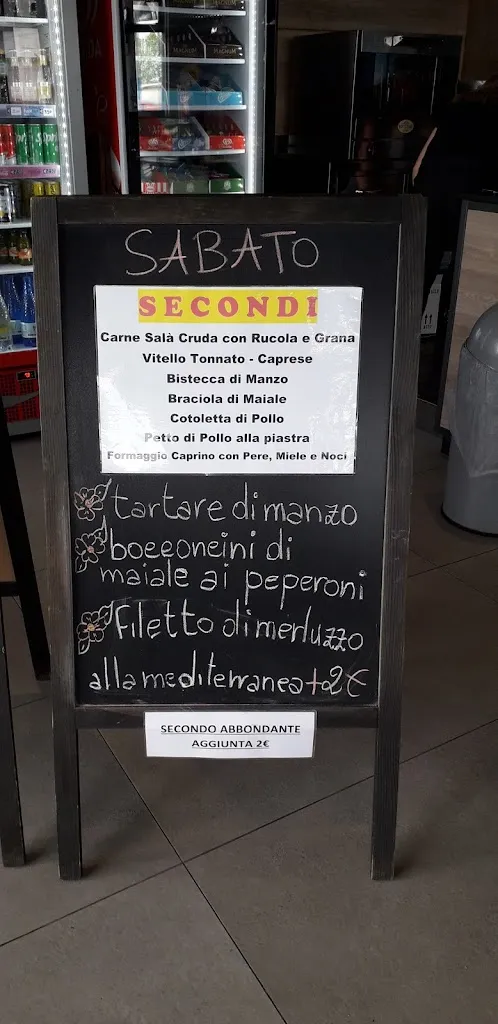 MAGNUM
SABATO
SECONDI
Carne Salà Cruda con Rucola e Grana
Vitello Tonnato - Caprese
Bistecca di Manzo
Braciola di Maiale
Cotoletta di Pollo
Petto di Pollo alla piastra
Formaggio Caprino con Pere, Miele e Noci
tartare di manzo
bocconcini di
maiale ai peperoni
filetto di merluzzo
alla mediterranea +2€
SECONDO ABBONDANTE
AGGIUNTA 2€